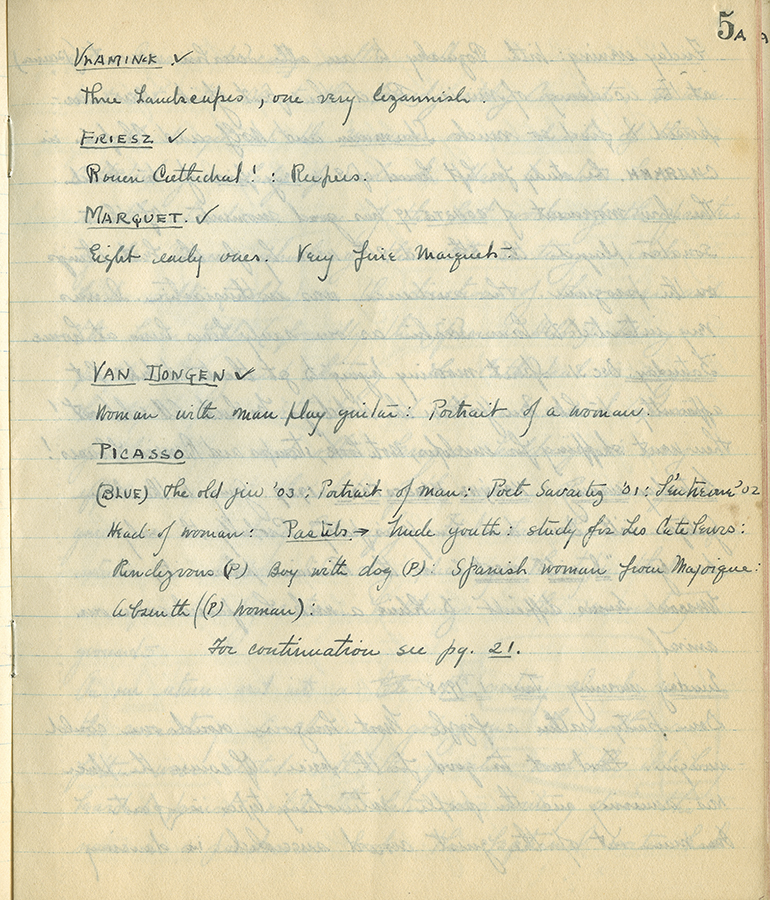 5A
VLAMINCK ✓
three Landscapes, one very Cezannish.
FRIESZ ✓
Rouen Cathedral! :
MARQUET. ✓
Eight early ones. Very fine Marquets.
VAN DONGEN ✓
Woman with man play guitar: Portrait of a woman.
PICASSO
(BLUE) The old jew '03: Portrait of man: Poet Savartez '01: '02
Head of woman: Pastels → Nude youth: study for Les
Rendezvous (P) Boy with dog (P): Spanish woman from Majorque:
Absinth ((P) woman):
For continuation see pg. 21.